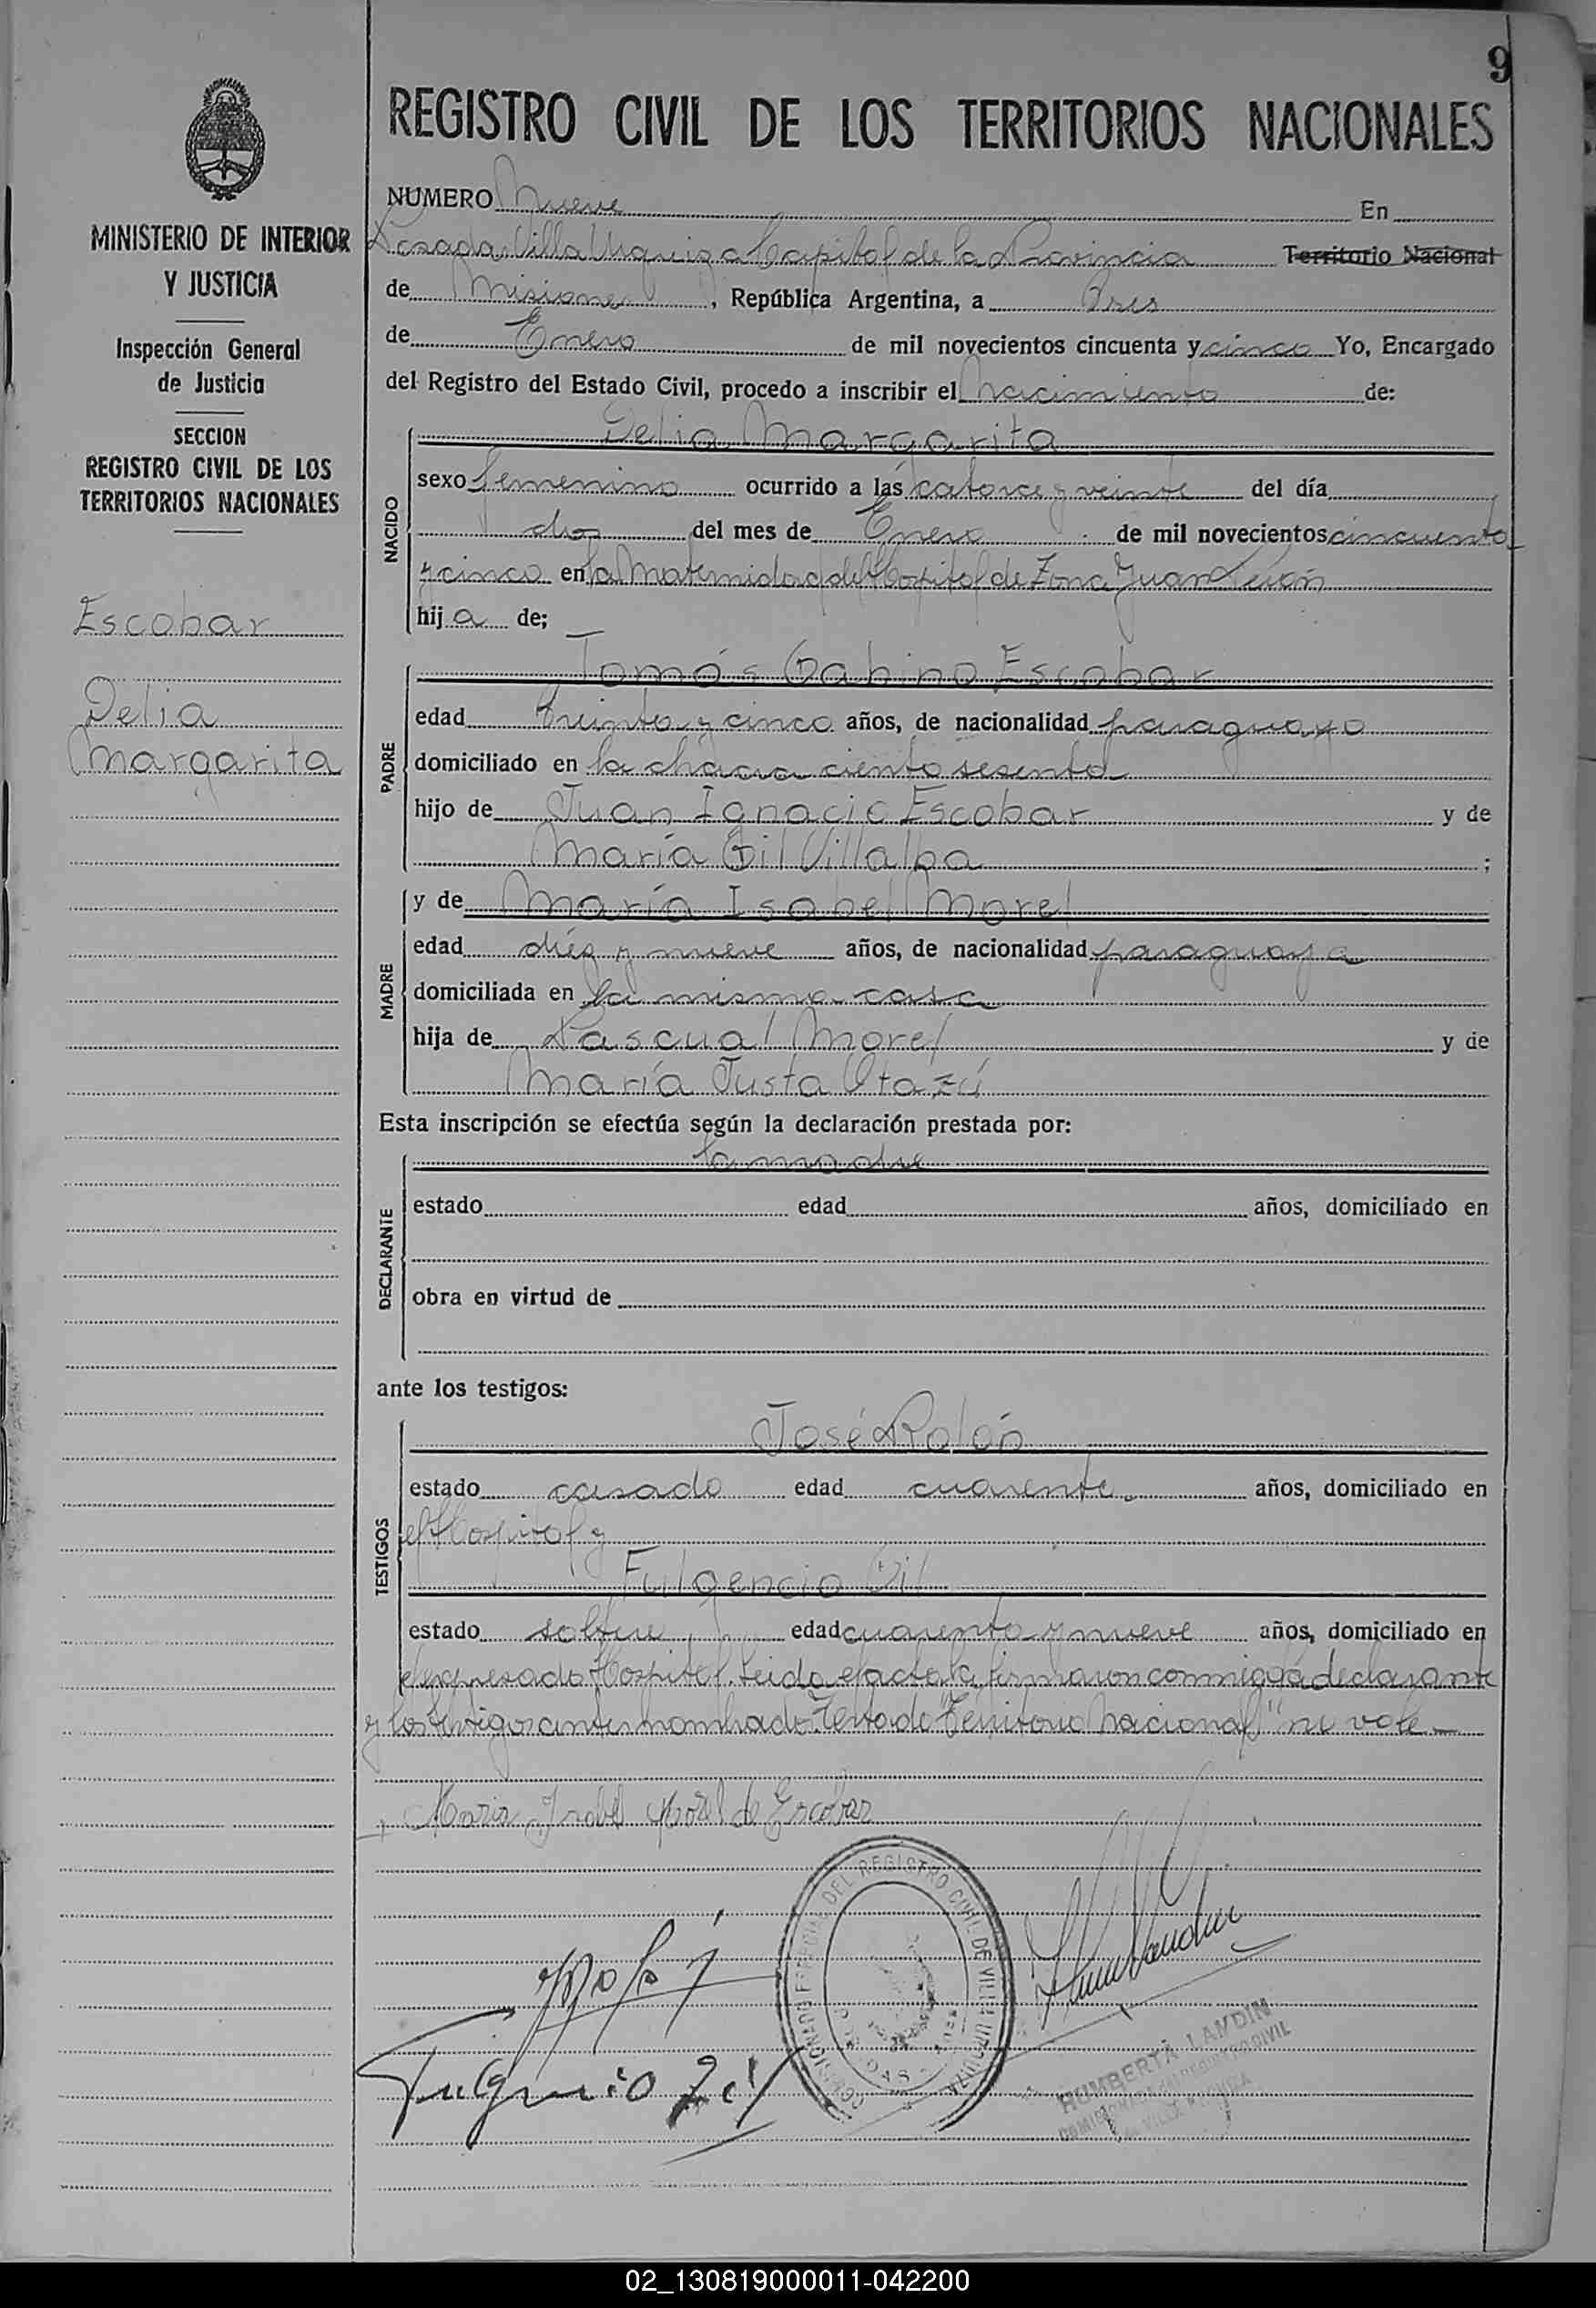 9
REGISTRO CIVIL DE LOS TERRITORIOS NACIONALES
MINISTERIO DE INTERIOR
Y JUSTICIA
Inspección General
de Justicia
SECCION
REGISTRO CIVIL DE LOS
TERRITORIOS NACIONALES
Escobar
Delia
Margarita
NUMERO Nueve En
Posadas Villa Urquiza Capital de la Provincia Territorio Nacional
de Misiones, República Argentina, a Tres
de Enero de mil novecientos cincuenta y cinco Yo, Encargado
del Registro del Estado Civil, procedo a inscribir el nacimiento de:
NACIDO
Delia Margarita
sexo femenino ocurrido a las catorce y veinte del día
dos del mes de Enero de mil novecientos cincuenta
y cinco en la Maternidad del Hospital de Zona Juan Perón
hija de;
PADRE
Tomás Gabino Escobar
edad treinta y cinco años, de nacionalidad paraguayo
domiciliado en la chacra ciento sesenta
hijo de Juan Ignacio Escobar y de
María Gil Villalba ;
y de María Isabel Morel
MADRE
edad diés y nueve años, de nacionalidad paraguaya
domiciliada en la misma casa
hija de Pascual Morel y de
María Justa Otazú
Esta inscripción se efectúa según la declaración prestada por:
DECLARANTE
la madre
estado edad años, domiciliado en
obra en virtud de
ante los testigos:
TESTIGOS
José Rolón
estado casado edad cuarenta años, domiciliado en
el Hospital y
Fulgencio Gil
estado soltero edad cuarenta y nueve años, domiciliado en
el expresado Hospital. Leida el acta la firmaron conmigo la declarante
y los testigos antes nombrados. Testado "Territorio Nacional" no vale
Maria Isabel Morel de Escobar
DEL REGISTRO CIVIL DE VILLA URQUIZA
HUMBERTA LANDIN
REGISTRO CIVIL
02_130819000011-042200